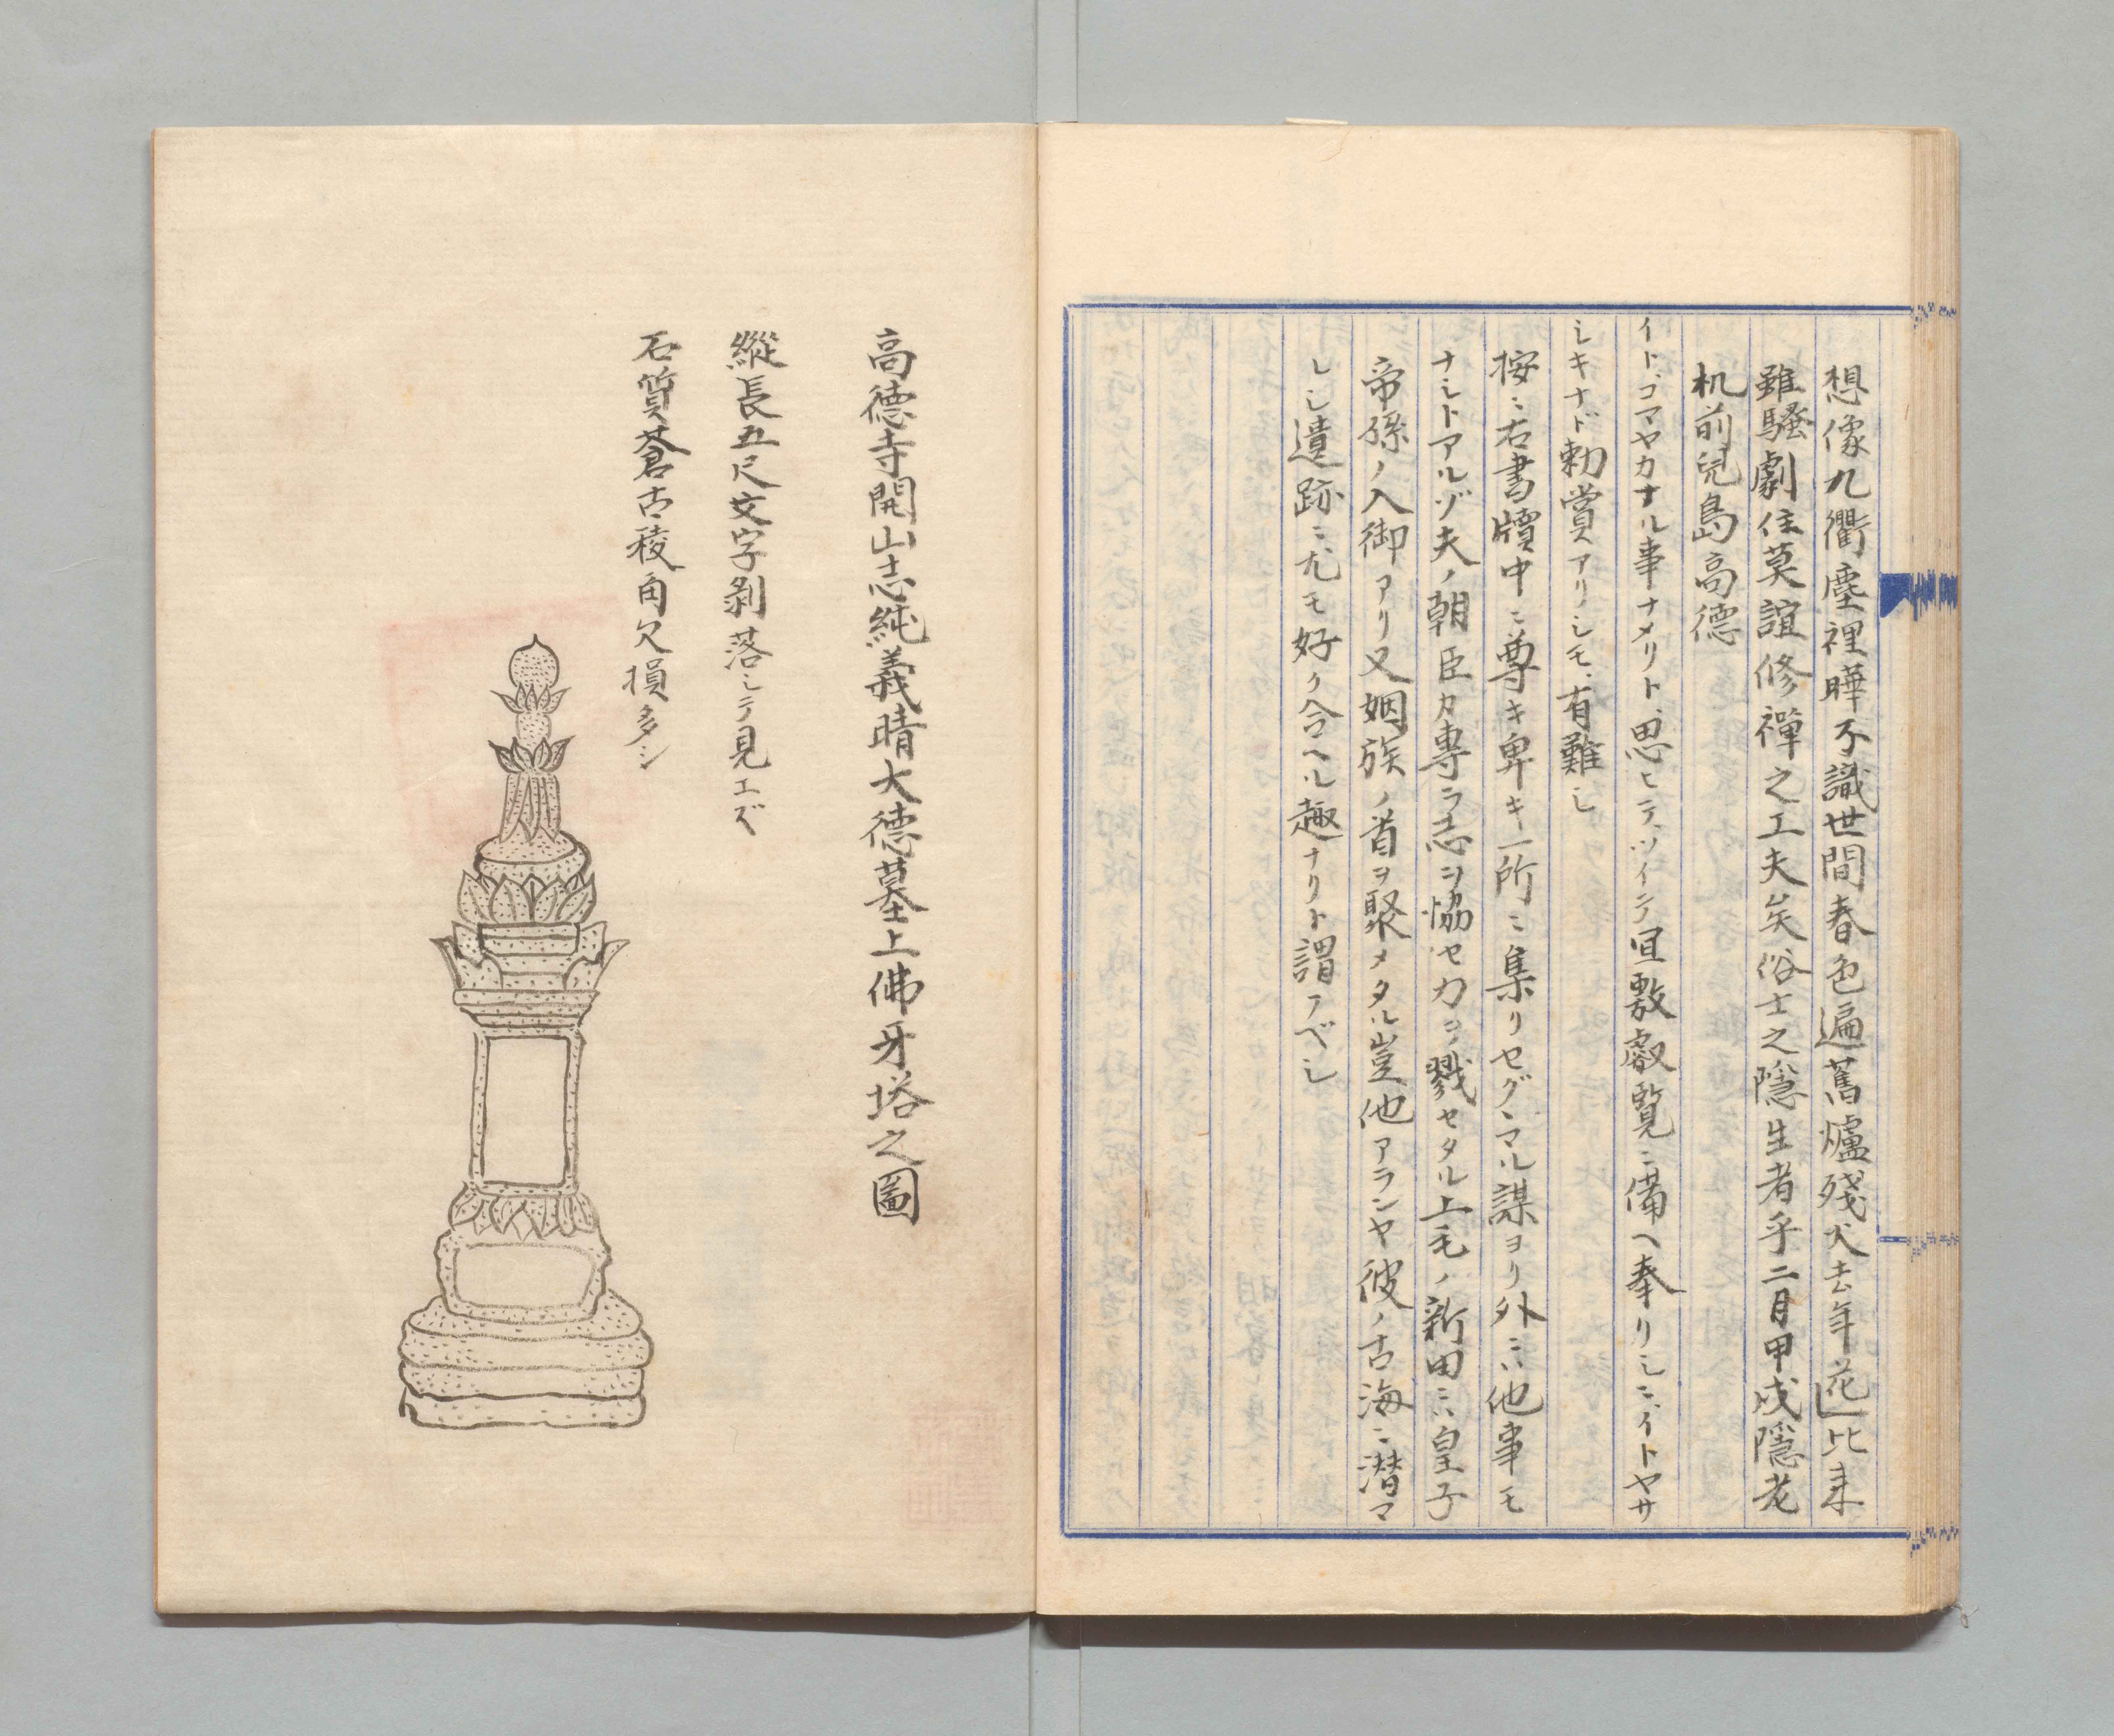 想像九衢塵裡曄不識世間春色遍舊爐殘火去年花比来
雖騒劇住莫誼修禪之工夫矣俗士之隱生者乎二月甲戌隱老
机前兒島高德
イトヾコマヤカナル事ナメリト、思ヒテ、ツイテ冝敷叡覧ニ備ヘ奉リシニ、イトヤサ
シキナド勅賞アリシモ、有難シ
按ニ右書牘中ニ尊キ卑キ一所ニ集リセグヽマル謀ヨリ外ニハ他事モ
ナシトアルゾ夫ノ朝臣カ專ラ志ヲ恊セ力ヲ戮セタル上毛ノ新田ニハ皇子
帝孫ノ入御アリ又姻族ノ首ヲ聚メタル豈他アランヤ彼ノ古海ニ潜マ
レシ遺跡ニ尤モ好ク合ヘル趣ナリト謂フベシ
高德寺開山志純義晴大德墓上佛牙塔之圖
縱長五尺文字剝落シテ見エズ
石質蒼古稜角欠損多シ